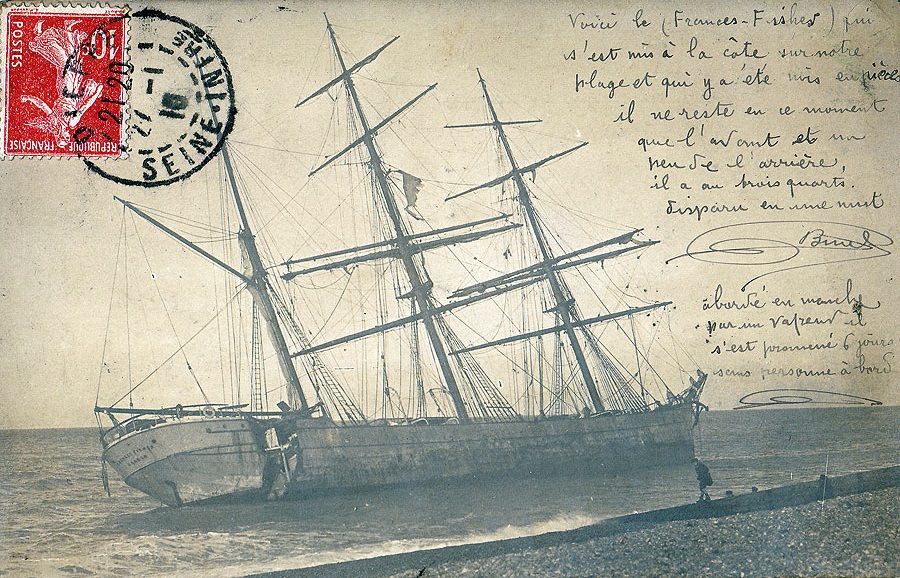 10
POSTES
REPUBLIQUE FRANÇAISE
SEINE INFRE
Voici le (Frances-Fisher) qui
s'est mis à la côte sur notre
plage et qui y a été mis en pièces
il ne reste en ce moment
que l'avant et un
peu de l'arrière,
il a au trois quarts
disparu en une nuit
abordé en manche
par un vapeur il
s'est promené 6 jours
sans personne à bord
FRANCES FISHER
LONDON